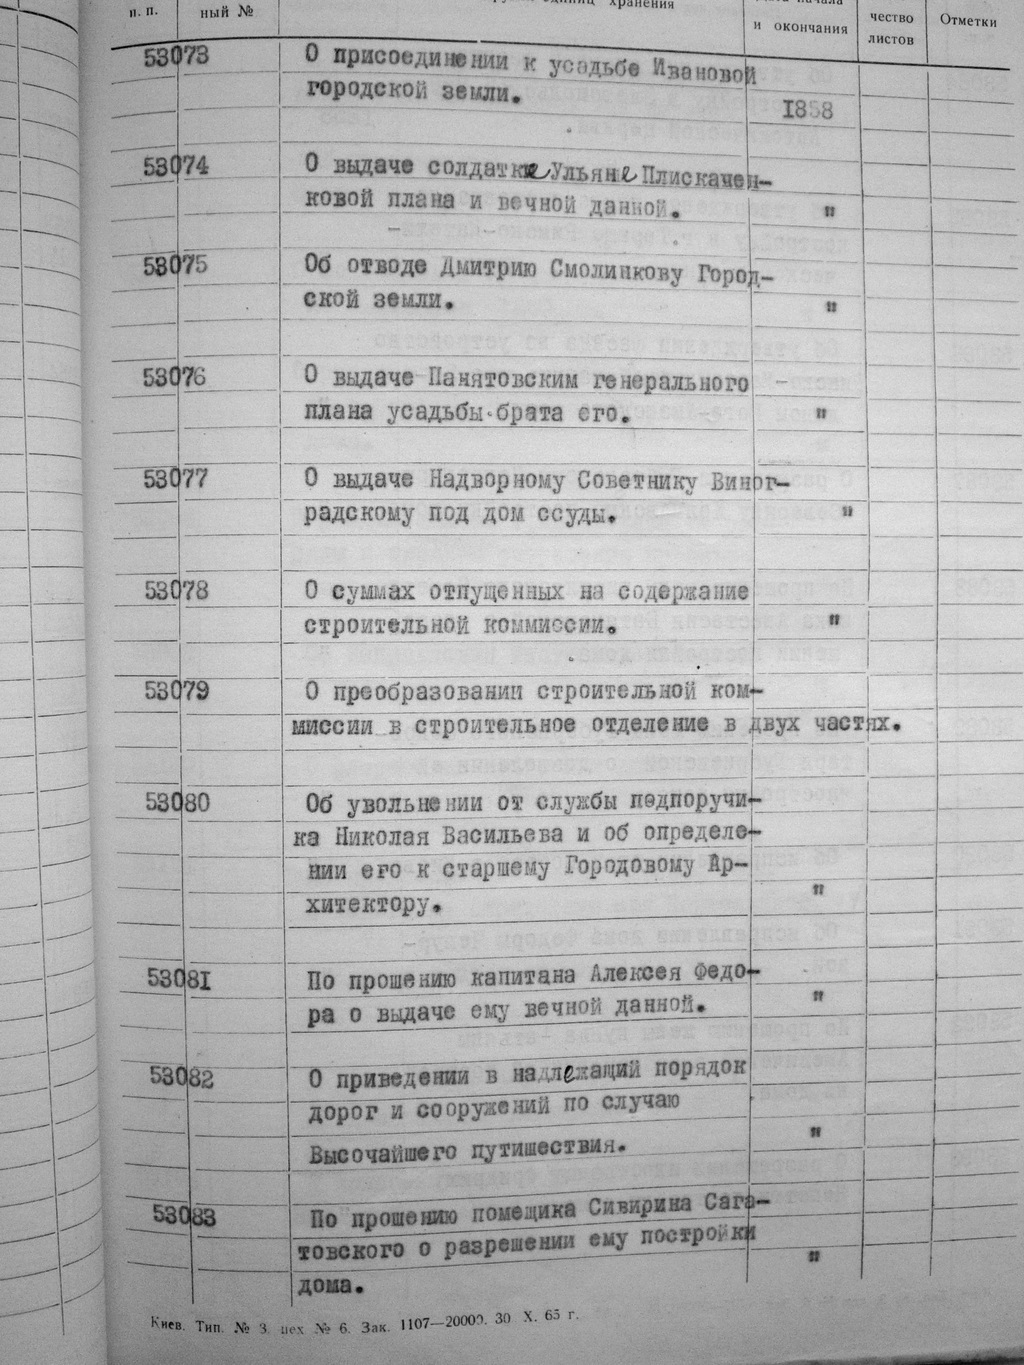 п. п.
ный №
единиц хранения
и окончания
чество
листов
Отметки
53073
О присоединении к усадьбе Ивановой
городской земли.
1858
53074
О выдаче солдатке Ульяне Плискачен-
ковой плана и вечной данной. "
53075
Об отводе Дмитрию Смолинкову Город-
ской земли. "
53076
О выдаче Панятовским генерального
плана усадьбы брата его. "
53077
О выдаче Надворному Советнику Виног-
радскому под дом ссуды. "
53078
О суммах отпущенных на содержание
строительной коммиссии. "
53079
О преобразовании строительной ком-
миссии в строительное отделение в двух частях.
53080
Об увольнении от службы подпоручи-
ка Николая Васильева и об определе-
нии его к старшему Городовому Ар-
хитектору. "
53081
По прошению капитана Алексея Федо-
ра о выдаче ему вечной данной. "
53082
О приведении в надлежащий порядок
дорог и сооружений по случаю
Высочайшего путишествия. "
53083
По прошению помещика Сивирина Сага-
товского о разрешении ему постройки
дома. "
Киев. Тип. № 3. цех № 6. Зак. 1107—20000. 30 X. 65 г.